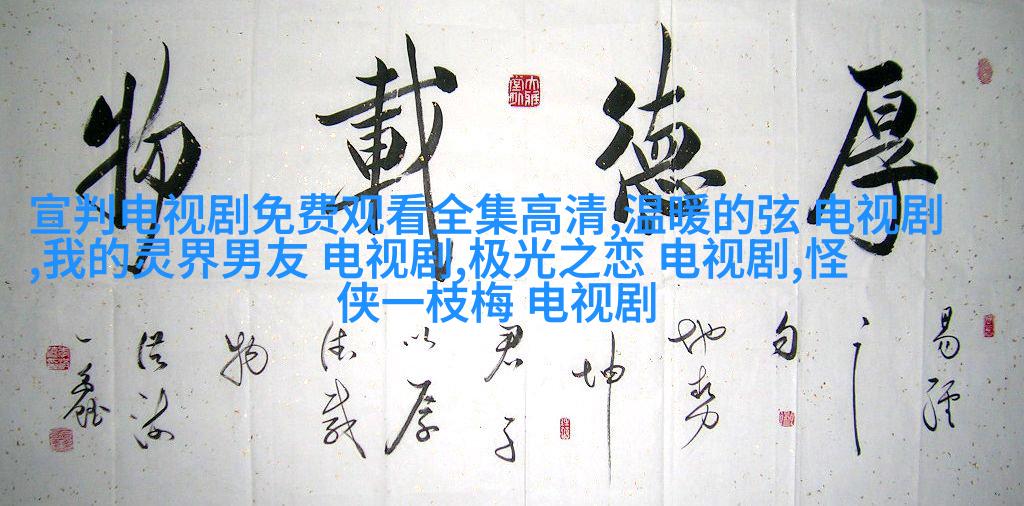 厚德載物
宣判电视剧免费观看全集高清,温暖的弦 电视剧
,我的灵界男友 电视剧,极光之恋 电视剧,怪
侠一枝梅 电视剧
易经
之
句
地势
坤
君子
以厚
德载
物